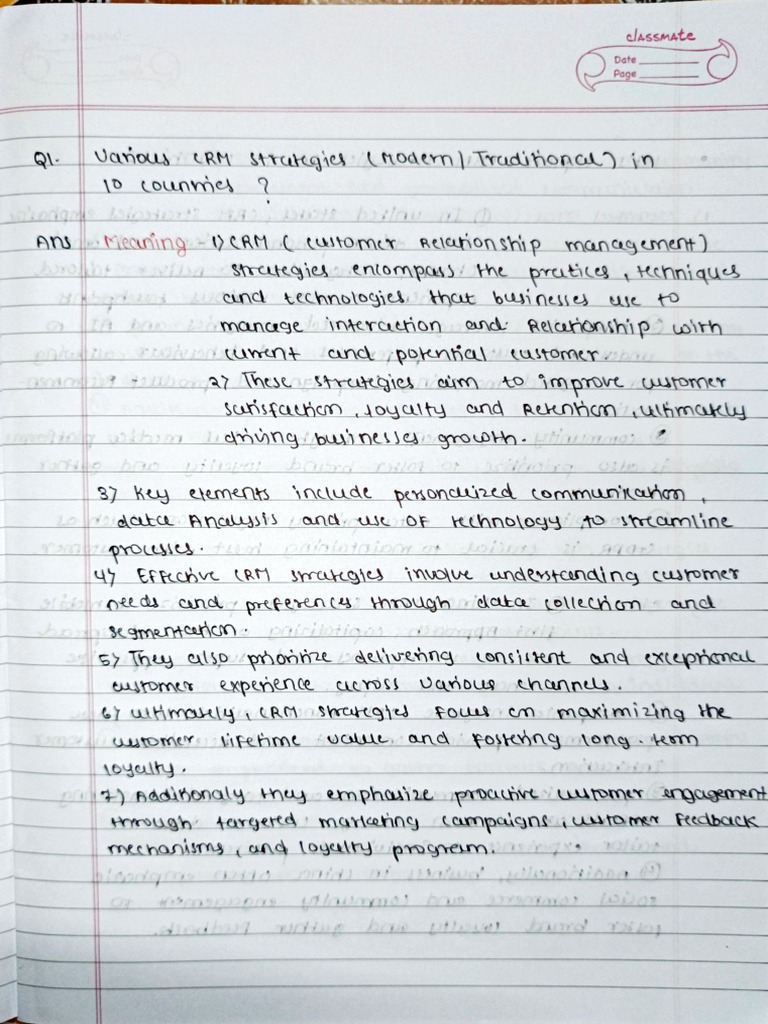 classmate
Date
Page
Q1. Various CRM strategies (Modern | Traditional) in
10 countries ?
Ans Meaning - 1) CRM ( customer Relationship management)
strategies encompass the pratices, techniques
and technologies that businesses use to
manage interaction and Relationship with
current and potential customer.
2) These strategies aim to improve customer
satisfaction, loyalty and Retention, ultimately
driving businesses growth.
3) Key elements include personalized communication,
data Analysis and use of technology to streamline
processes.
4) Effective CRM strategies involve understanding customer
needs and preferences through data collection and
segmentation.
5) They also prioritize delivering consistent and exceptional
customer experience across various channels.
6) ultimately, CRM strategies focus on maximizing the
customer lifetime value and fostering long-term
loyalty.
7) Additionaly they emphasize proactive customer engagement
through targeted marketing campaigns, customer feedback
mechanisms, and loyalty program.